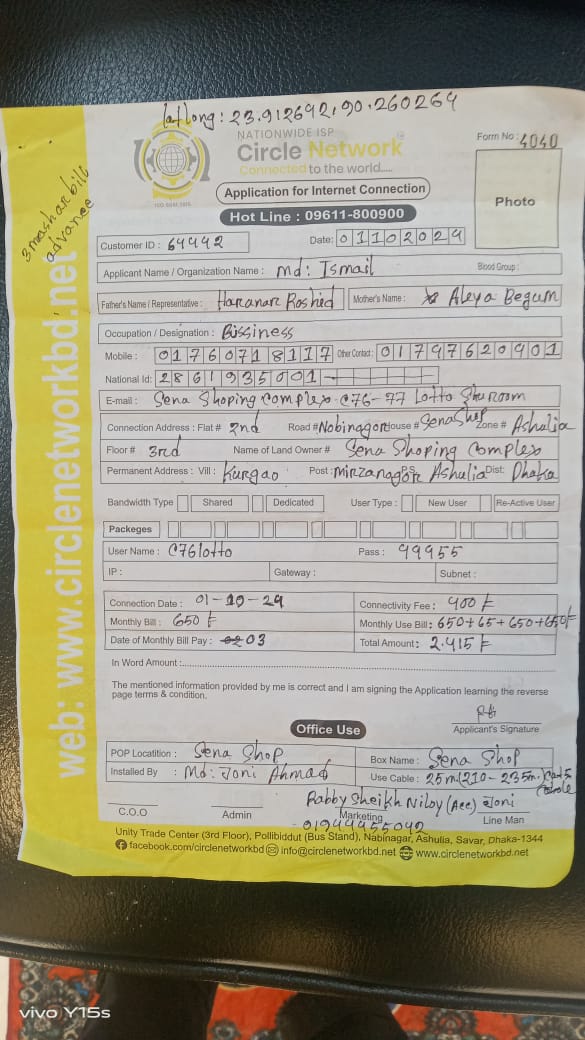 latlong: 23.912692, 90.260264
NATIONWIDE ISP
Circle Network
Connected to the world.....
ISO 9001:2015
Form No: 4040
Application for Internet Connection
Photo
Hot Line : 09611-800900
3 mash ar bill
advance
Customer ID : 64442 Date: 01102024
Applicant Name / Organization Name : md: Ismail Blood Group :
Father's Name / Representative : Haranar Roshid Mother's Name : Aleya Begum
Occupation / Designation : Bissiness
Mobile : 01760718117 Other Contact : 01797620901
National Id: 2861935001
E-mail : Sena Shoping Complex-C76-77 Lotto Shuroom
Connection Address : Flat # 2nd Road # Nobinggor House # Sena Shop Zone # Ashulia
Floor # 3rd Name of Land Owner # Sena Shoping Complex
Permanent Address : Vill : Kurgao Post : Mirzanggor P.S: Ashulia Dist: Dhaka
Bandwidth Type Shared Dedicated User Type : New User Re-Active User
Packeges
User Name : C76lotto Pass : 99955
IP : Gateway : Subnet :
Connection Date : 01-10-24 Connectivity Fee : 400 ৳
Monthly Bill : 650 ৳ Monthly Use Bill : 650+65+650+650৳
Date of Monthly Bill Pay : 03 Total Amount : 2.415 ৳
In Word Amount :
The mentioned information provided by me is correct and I am signing the Application learning the reverse
page terms & condition.
Applicant's Signature
Office Use
POP Locatition : Sena Shop Box Name : Sena Shop
Installed By : Md: Joni Ahmad Use Cable : 25m (210-235m)
Rabby Sheikh Niloy (Acc)
C.O.O Admin Marketing Line Man
01944455042
Unity Trade Center (3rd Floor), Pollibiddut (Bus Stand), Nabinagar, Ashulia, Savar, Dhaka-1344
facebook.com/circlenetworkbd info@circlenetworkbd.net www.circlenetworkbd.net
web: www.circlenetworkbd.net
vivo Y15s